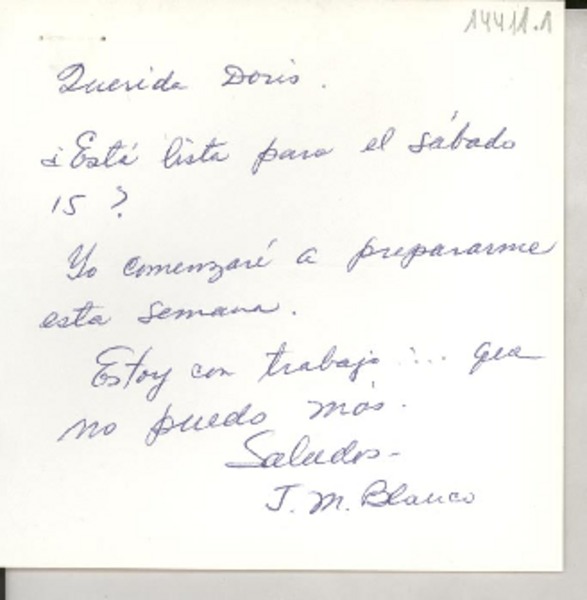 14411.1
Querida Doris.
¿Está lista para el sábado
15?
Yo comenzaré a prepararme
esta semana.
Estoy con trabajo... que
no puedo más.
Saludos-
J. M. Blanco